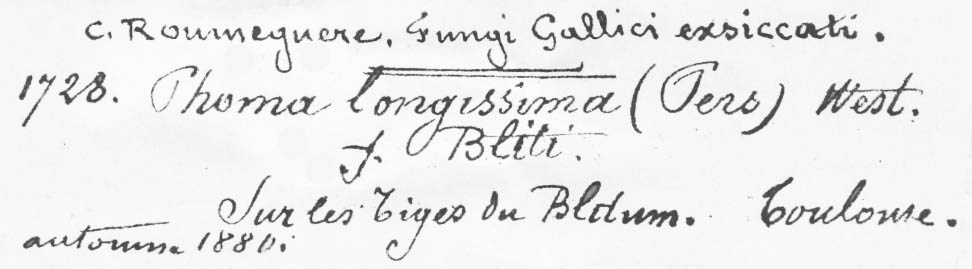 C. Roumeguere. Fungi Gallici exsiccati.
1728. Phoma longissima (Pers) West.
f. Bliti.
Sur les Tiges du Blitum. Toulouse.
automne 1880.